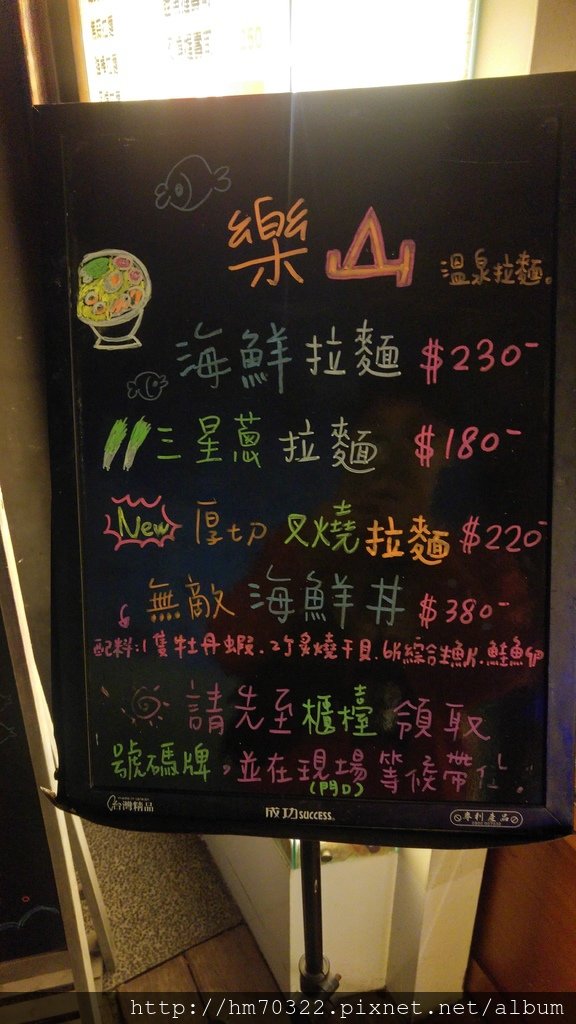 樂山 溫泉拉麵。
海鮮拉麵 $230-
三星蔥拉麵 $180-
New 厚切叉燒拉麵 $220-
無敵海鮮丼 $380-
配料:1隻牡丹蝦、2顆炙燒干貝、6片綜合生魚片、鮭魚卵
請先至櫃檯領取
號碼牌,並在現場等候帶位.
(門口)
台灣精品
成功 SUCCESS
專利產品
http://hm70322.pixnet.net/album